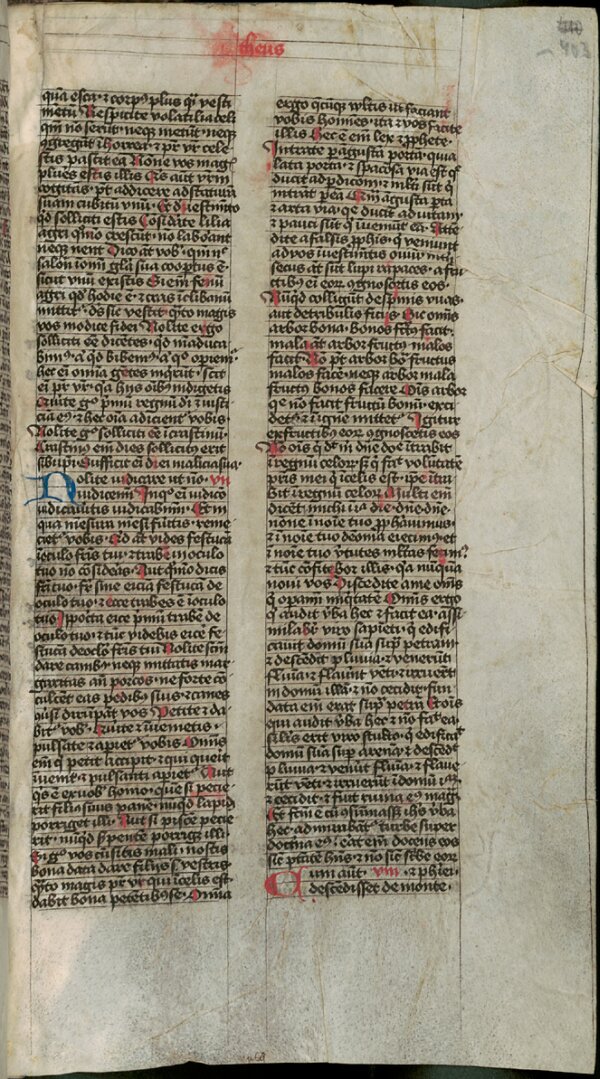 theus
403
quā esca· ⁊ corpꝰ plus qͣ vesti
metū Respicite volatilia celi
qm̄ nō serūt· neqꝫ metūt· neqꝫ
ꝯgregāt ī horrea· ⁊ pr̄ vr̄ cele
stis pascit ea Nōne vos mag̾
plures estis illis Q̾s aūt vrm̄
cogitās· pt̄ addicere ad statura
suam cubitū vnū· Et de vestimēto
qd solliciti estis Cōsid̾ate lilia
agri qͦmō crescūt· nō laborāt
necqꝫ nent Dico āt vob̾· qm̄ nͨ
salōn ī om̄i gl̄a sua coop̾tus ē·
sicut vnū ex istis Si em̄ fenū
agri qd̾ hodie ē· ⁊ cras ī clibanū
mittit̾· dꝰs sic vestit· qͣto magis
vos modice fidei Nolite ergo
solliciti eē dicētes· qd māduca
bimꝰ· aͭ qd bibemꝰ· aͭ qͦ op̾iem̾
hec ei om̄ia gētes inq̾rūt· scit
ei pr̄ vr̄· qa hijs oībꝫ indigetis
Querite gͦ pͥmū regnū dī· ⁊ iusti
ciā eꝰ· ⁊ hec oīa adicient̾ vobis·
Nolite gͦ solliciti eē ī crastinū·
Crastinꝰ em̄ dies sollicitꝰ erit
sibi ipi· Sufficit ei diei malicia sua·
Nolite iudicare ut nō· vii
iudicem̄ī In qͦ eī iudicō
iudicaūitis iudicabīmī· Et in
qua mesura mēsi fūitis· reme
ciet̾ vobis· Qd āt vides festucā
ī oculo frīs tui· ⁊ trabē ī oculo
tuo nō cōsid̾as· Aut qͦmō dicis
frī tuo· Fr̄ sine eiciā festucā de
oculo tuo· ⁊ ecce trabes ē ī oculo
tuo Ipocͥta eice pͥmū trabē de
oculo tuo· ⁊ tūc videbis eice fe
stucā de oclō frīs tui Nolite scm̄
dare canibꝫ· neqꝫ mittatis mar
garitas an̄ porcos· ne forte cō
culcēt eas pedibꝫ suis· ⁊ canes
ꝯuˀsi dirūpāt vos Petite ⁊ da
bit̾ vob̾· Querite ⁊ īuēnietis·
pulsate ⁊ ap̾iet̾ vobis Om̄īs
em̄ qͥ petit accipit· ⁊ qui querit
īuenit· ⁊ pulsanti ap̾iet̾ Aut
qͥs ē ex vob̾ homo· que si pecie
rit filiꝰ suus panē· nūqd lapidē
porriget illi· Aut si piscē pecie
rit· nūqd s̾pente porrig̾ illi·
Si gͦ vos cū sitis mali· nostis
bona data dare filijs vestris·
qͣto magis pr̄ vr̄ qui ī celis est·
dabit bona petētibꝫ se· Om̄ia
ergo qcūqꝫ vltis ut faciant
vobis homīes· ita ⁊ vos facite
illis Hec ē em̄ lex ⁊ ꝓphete·
Intrate ꝑ agustā portā· quia
lata porta· ⁊ spacōsa via est qͤ
ducit ad ꝑdicōem· ⁊ ml̄ti sūt qͥ
intrāt ꝑ eā Qm̄ agusta pͬta
⁊ arta via· qͤ ducit ad vitam·
⁊ pauci sūt qͥ īueniūt eā· Atte
dite a falsis ꝓphīs· qͥ veniunt
ad vos ī vestimētis ouiū· ītrī
secus āt sūt lupi rapaces· a fru
ctibꝫ ei eorꝫ ꝯgnoscetis eos·
Nūqd colligūt de spinis vuas·
aut de tribulis ficus· Sic omīs
arbor bona· bonos fructꝰ facit·
mala āt arbor fructꝰ malos
facit Nō pt̄ arbor bōa fructus
malos facē· neqꝫ arbor mala
fructꝰ bonos facere Om̄is arbor
qͤ nō facit fructū bonū· exci
det̾· ⁊ ī ignē mittet̾ Igitur
ex fructibꝫ eorꝫ ꝯgnoscetis eos
Nō oīs qͥ dꝭ m̄ dn̄e dn̄e ītrabit
ī regnū celorꝫ· sꝫ qͥ fāt volūtatē
pr̄is mei qͥ ī celis est· ip̄e ītra
bit ī regnū celorꝫ Multi em̄
dicēt michi ī illa die· dn̄e dn̄e·
nōne ī noīe tuo ꝓphāuimus·
⁊ ī noīe tuo demōia eiecimꝰ· ⁊
ī noīe tuo v̾tutes m̄ltas fecimꝰ
⁊ tūc cōfitebor illis· qa nūqua
noui vos Discedite a me om̄s
qͥ op̾amī iniqͥtatē Om̄is ergo
qͥ audit v̾ba hec· ⁊ facit ea· assi
milabit̾ viro sapiēti· qͥ edifi
cauit domū suā supͣ petram·
⁊ descēdit pluuia· ⁊ venerūt
flūīa· ⁊ flauerūt vēti· ⁊ irruerūt
in domū illā· ⁊ nō cecidit· fun
data em̄ erat sup̾ petrā Et oīs
qui audit v̾ba hec ⁊ nō facit ea·
sil̄is erit viro stulto· qͥ edificat
domū suā sup̾ arenā· ⁊ descēdt
pluuia· ⁊ venerūt flūīa· ⁊ flaue
rūt vēti· ⁊ irruerūt ī domū illā·
⁊ cecidit· ⁊ fuit ruina eꝰ mag̾
Et fcm̄ ē cū ꝯsūmasset ihs v̾ba
hec· ad mirabāt̾ turbe super
doctrīa eꝰ· erat em̄ docens eos
sic ptātē hn̄s· ⁊ nō sic scͥbe eorꝫ
Cum aūt· viii ⁊ phiei·
descēdisset de monte·